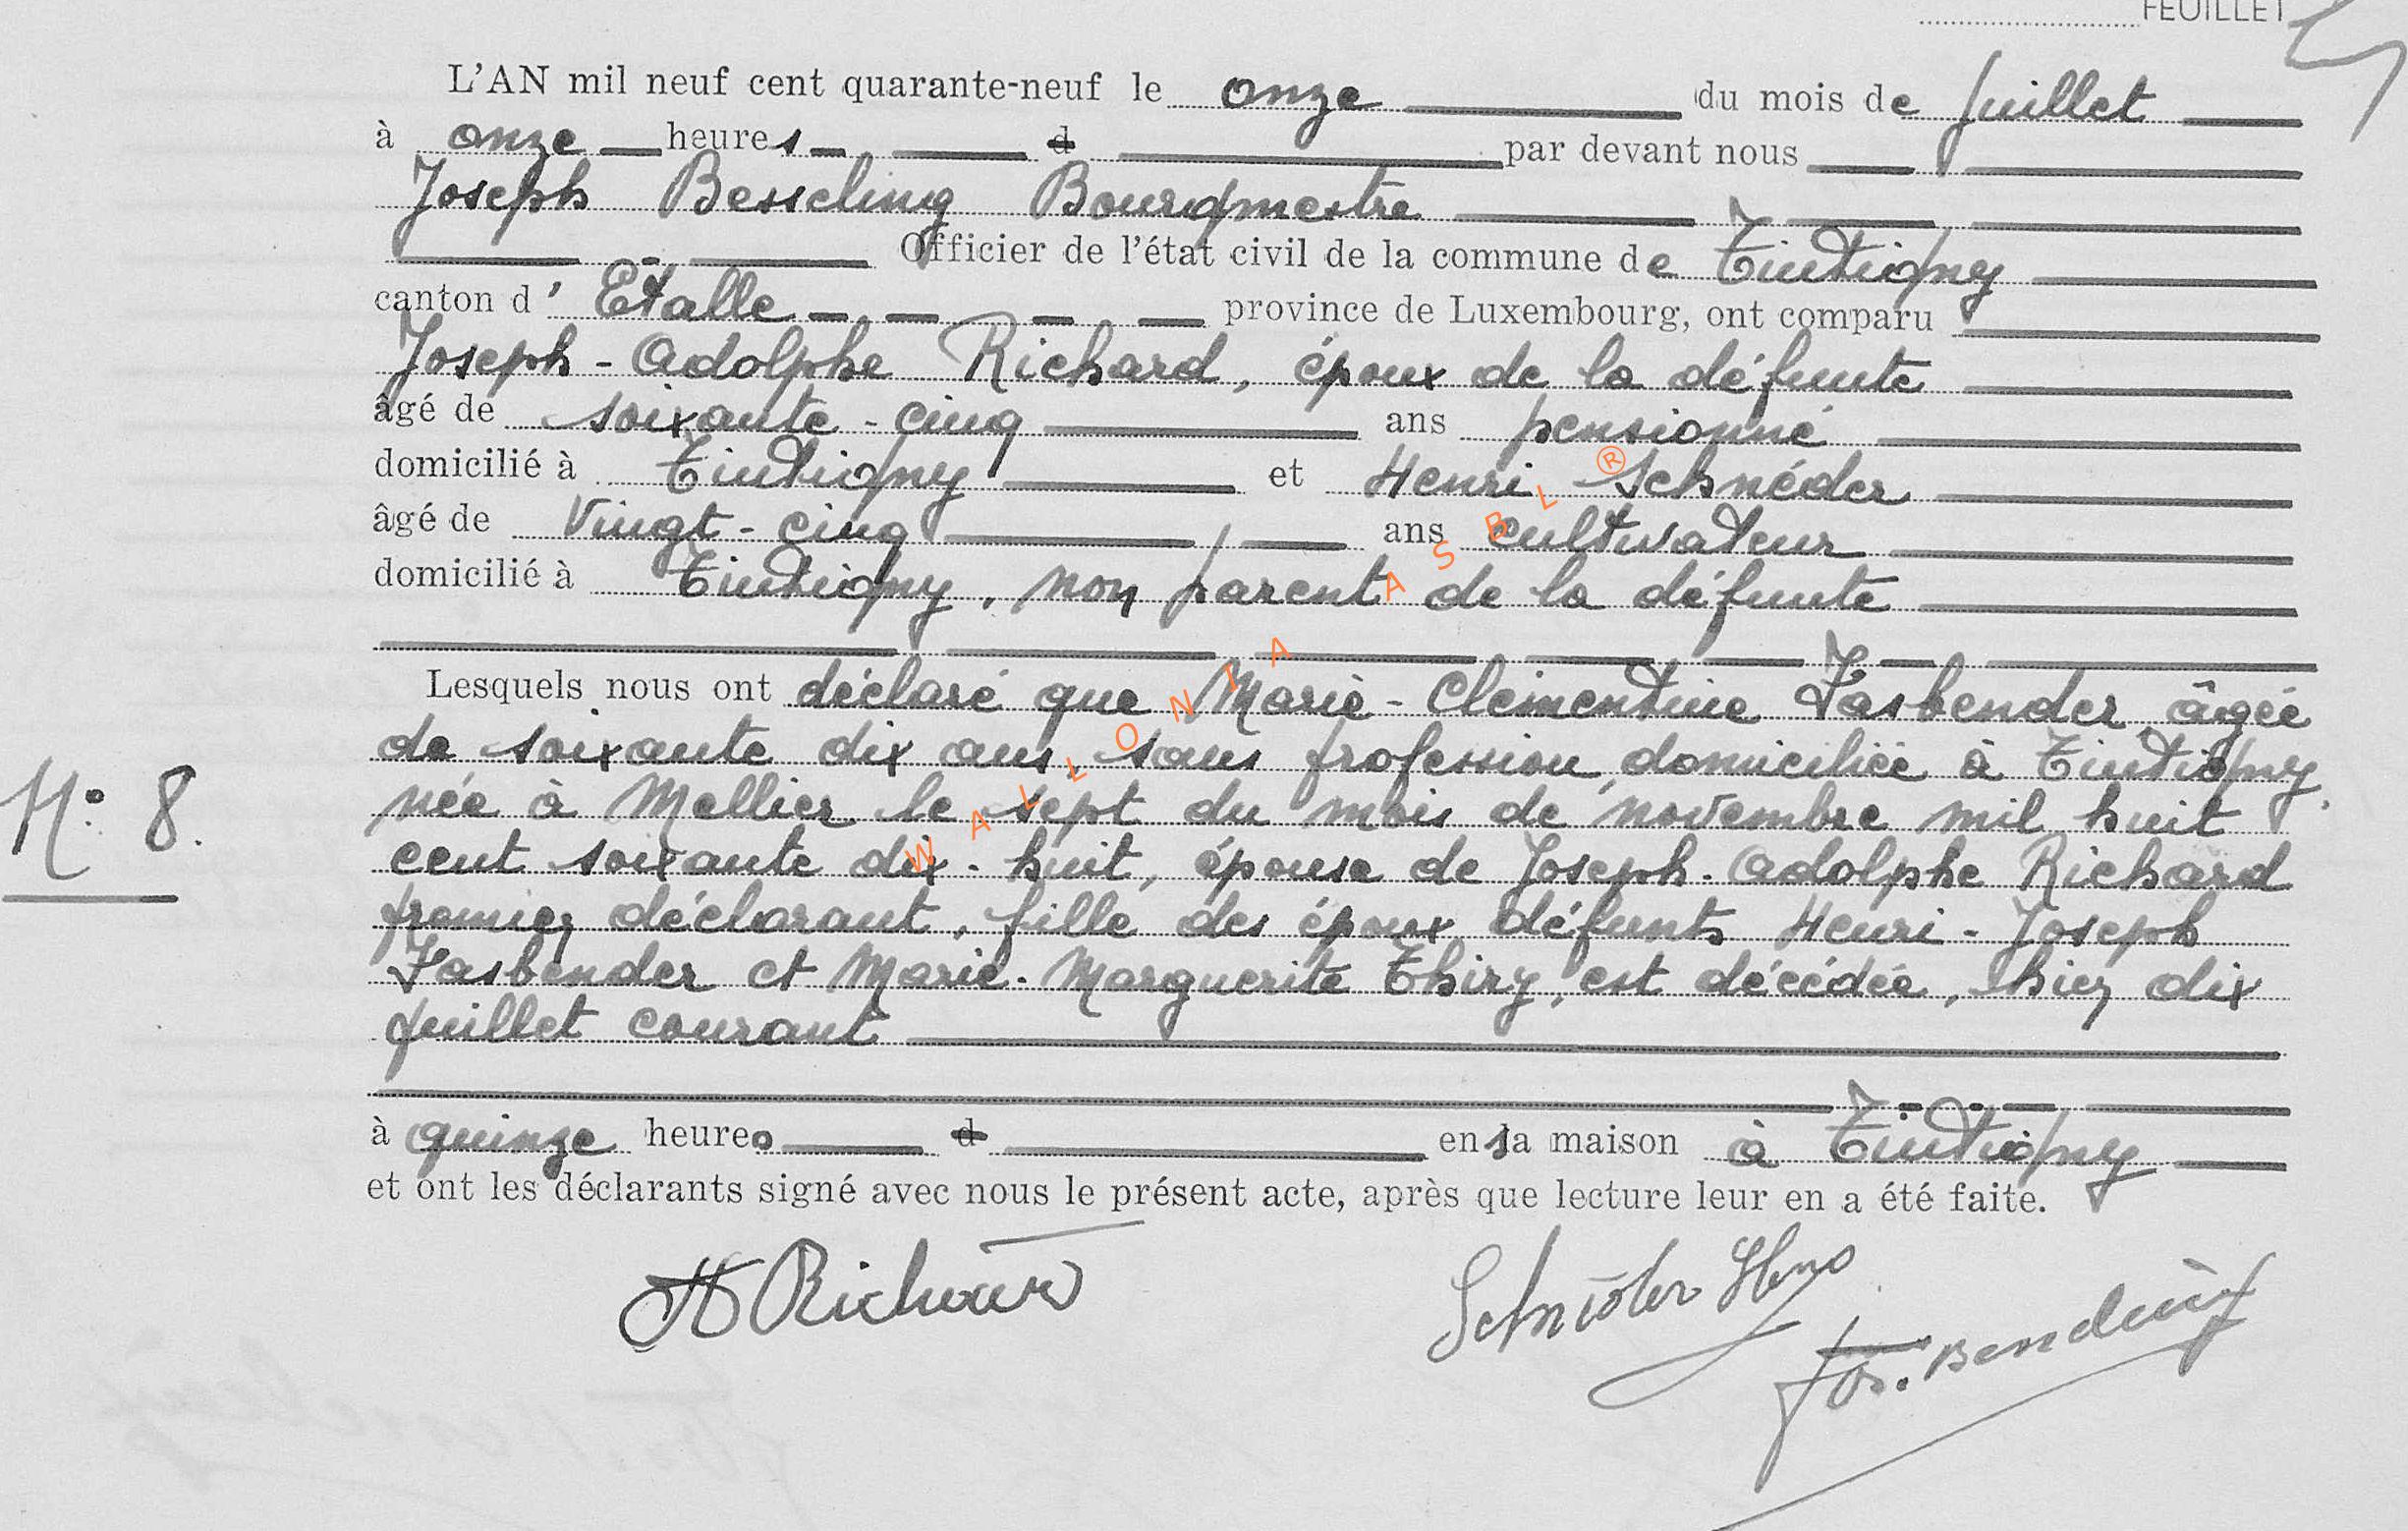 FEUILLET
L'AN mil neuf cent quarante-neuf le onze du mois de Juillet
à onze heures d par devant nous
Joseph Bessling Bourgmestre
Officier de l'état civil de la commune de Tintigny
canton d' Etalle province de Luxembourg, ont comparu
Joseph-Adolphe Richard, époux de la défunte
âgé de soixante-cinq ans pensionné
domicilié à Tintigny et Henri Schnéder
âgé de vingt-cinq ans cultivateur
domicilié à Tintigny, non parent de la défunte
Lesquels nous ont déclaré que Marie-Clémentine Fasbender, âgée
de soixante dix ans, sans profession, domiciliée à Tintigny,
née à Mellier le sept du mois de novembre mil huit
N° 8.
cent soixante dix-huit, épouse de Joseph-Adolphe Richard
premier déclarant, fille des époux défunts Henri-Joseph
Fasbender et Marie-Marguerite Thiry, est décédée, hier dix
juillet courant
à quinze heures d en sa maison à Tintigny
et ont les déclarants signé avec nous le présent acte, après que lecture leur en a été faite.
Richard
WALLONIA ASBL ®